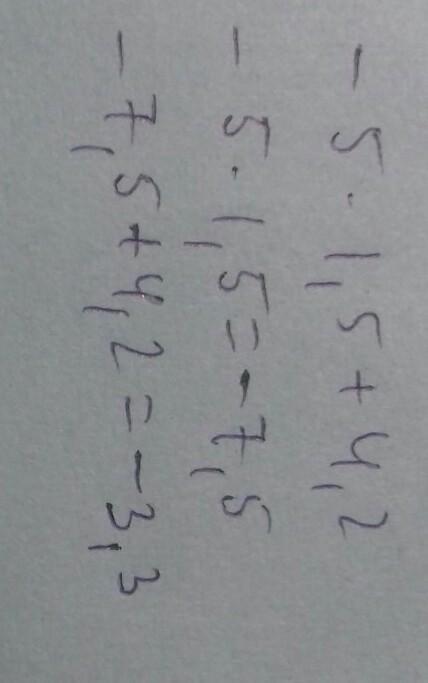 - 5 · 1,5 + 4,2
- 5 · 1,5 = - 7,5
- 7,5 + 4,2 = - 3,3